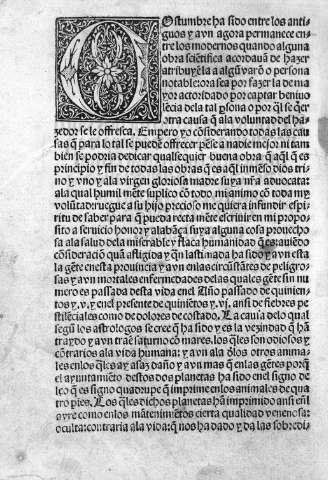 Ostumbre ha sido entre los anti
guos y avn agora permanece en
tre los modernos quando alguna
obra sciẽtifica acordauã de hazer
atribuyẽla a algũ varõ o persona
notable: ora sea por fazer la de ma
yor actoridad o por captar beniuo
lẽcia dela tal psona o por q̃l se q̃er
otra causa q̃ ala voluntad del ha
zedor se le offresca. Empero yo cõsiderando todas las cau
sas q̃ para lo tal se puedẽ offrecer pẽse a nadie mejor ni tam
bien se podria dedicar qualsequier buena obra q̃ aq̃l q̃ es
principio y fin de todas las obras q̃ es aq̃l inmẽso dios tri
no y vno y ala virgen gloriosa madre suya nr̃a aduocata:
ala qual humil mẽte suplico cõ todo mi animo cõ toda my
volũtad: ruegue a su hijo precioso me quiera infundir espiri
tu de saber para q̃ pueda recta mẽte escreuir en mi propo
sito a seruicio honor y alabãça suya alguna cosa prouechosa
ala salud dela miserable y flaca humanidad
cõsideraciõ quã afligida y quã lastimada ha sido y avn esta
la gẽte en esta prouincia y avn enlas circũstãtes de peligro
sas y avn mortales enfermedades delas quales gẽte sin nu
mero es passada desta vida enel Año passado de quinien
tos y .v. y enel presente de quiniẽtos y .vj. ansi de fiebres pe
stilẽciales como de dolores de costado. La causa delo qual
segũ los astrologos se cree q̃ ha sido y es la vezindad q̃ han
traydo y avn traẽ saturno cõ mares. los q̃les son odiosos y
cõtrarios ala vida humana: y avn a ôlos otros anima
les enlos q̃les ay asaz daño y avn mas q̃ enlas gẽtes porq̃
el ayuntamiẽto destos dos planetas ha sido enel signo de
leo q̃ es signo quadrupe q̃ imprime enlos animales de qua
tro pies. Los q̃les dichos planetas hã imprimido ansi enel
ayre como enlos mãtenimiẽtos cierta qualidad venenosa:
oculta: contraria ala vida: q̃ nos ha dado y da las sobredi